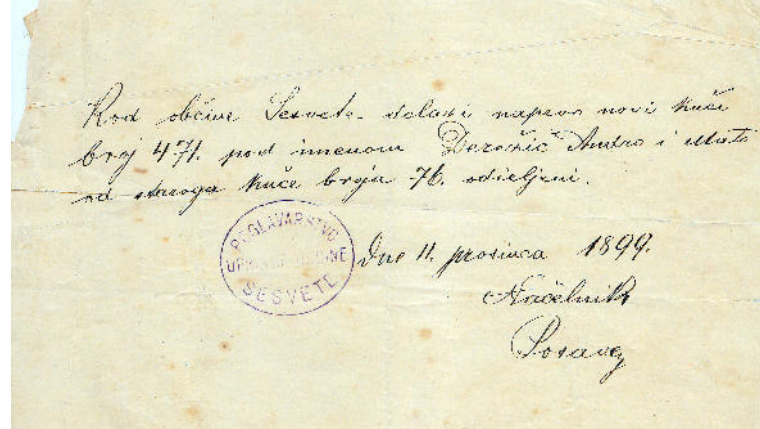 Kod občine Sesvete dolazi napravo novi kuće
broj 471. pod imenom Derožić Andro i Mato
od staroga kuće broja 76. odieljeni.
POGLAVARSTVO
UPRAVNE OBĆINE
SESVETE
Dne 11. prosinca 1899.
Načelnik
Posavec